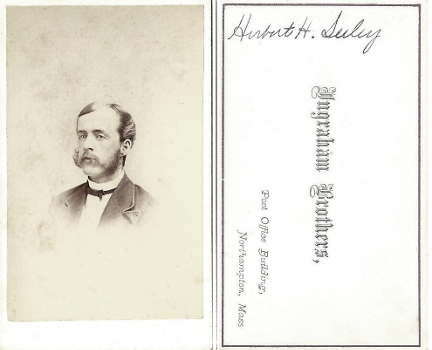 Herbert H. Seeley
Ingraham Brothers,
Post Office Building,
Northampton, Mass